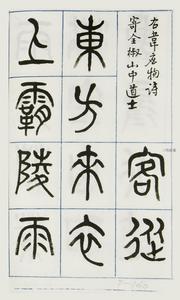 右韋應物詩
寄全椒山中道士
客從
東方來衣
上霸陵雨